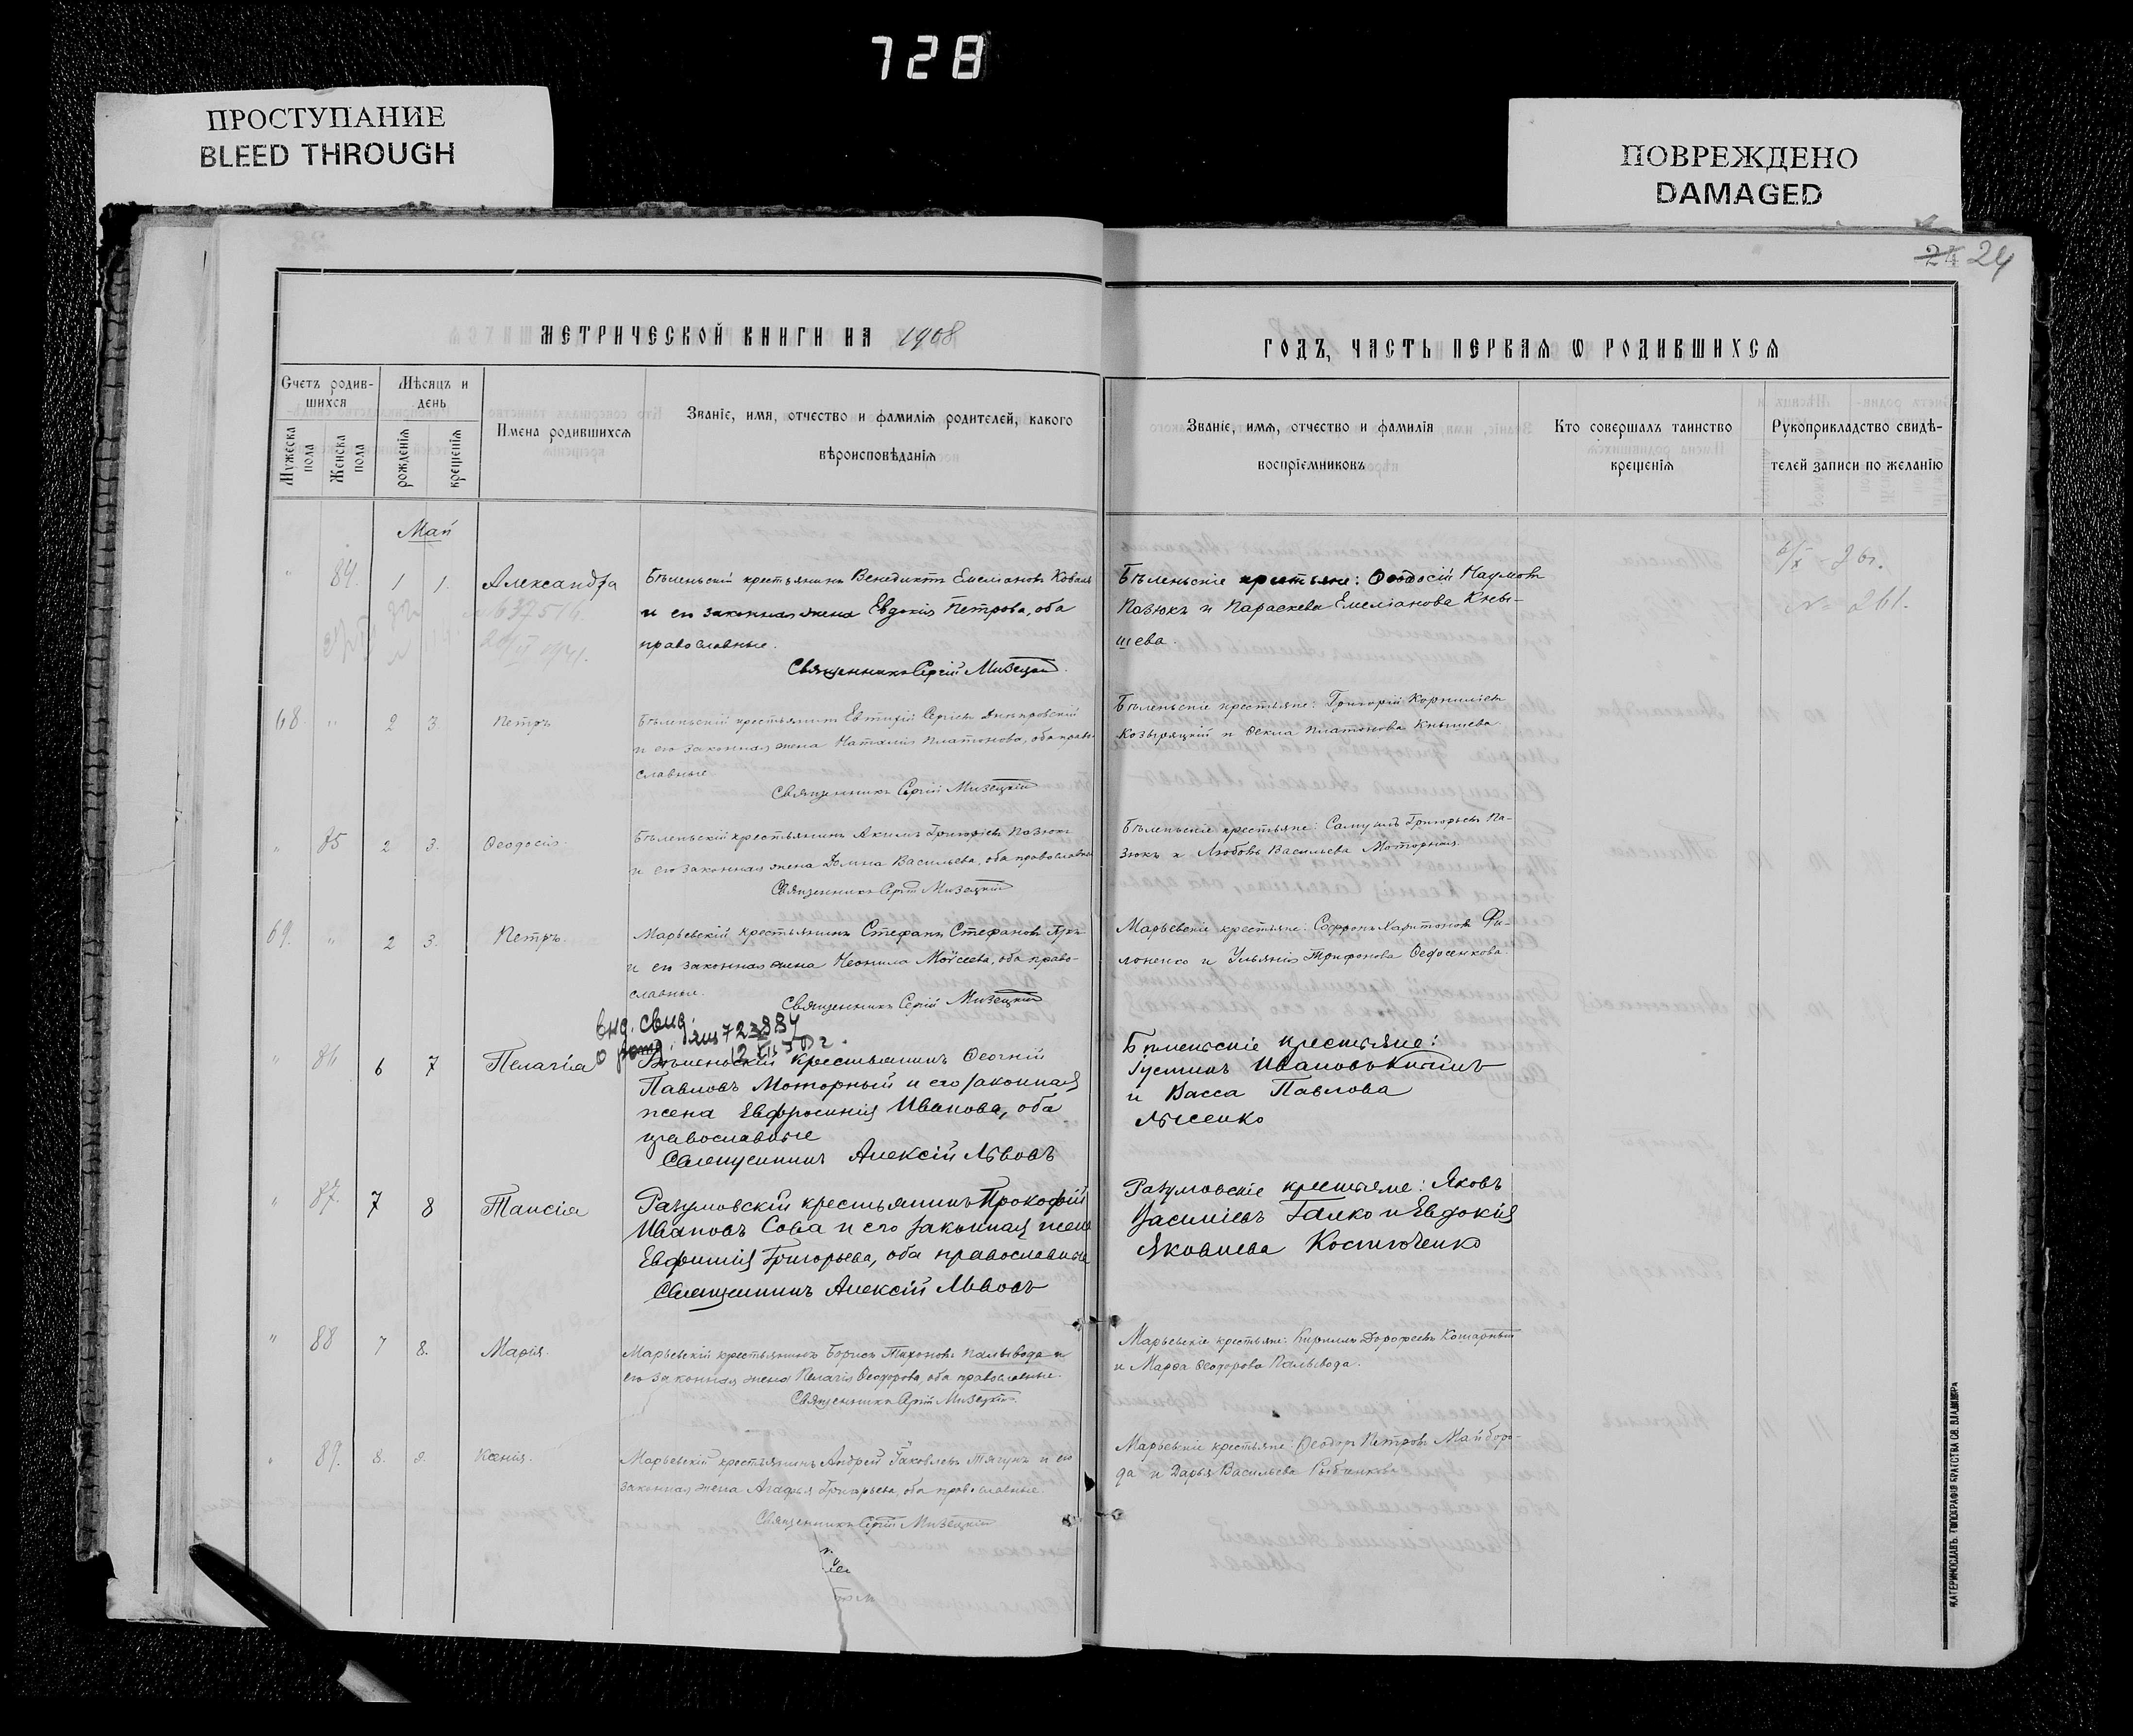 728
ПРОСТУПАНИЕ
BLEED THROUGH
ПОВРЕЖДЕНО
DAMAGED
24 24
МЕТРИЧЕСКОЙ КНИГИ НА 1908
ГОДЪ, ЧАСТЬ ПЕРВАЯ Ѡ РОДИВШИХСЯ
Счетъ родив-
шихся
Мужеска пола
Женска пола
Мѣсяцъ и
день
рожденія
крещенія
Имена родившихся
Званіе, имя, отчество и фамилія родителей, какого
вѣроисповѣданія
Званіе, имя, отчество и фамилія
воспріемниковъ
Кто совершалъ таинство
крещенія
Рукоприкладство свидѣ-
телей записи по желанію
Май
" 84. 1 1. Александра
Бѣленьскій крестьянинъ Венедиктъ Емеліановъ Коваль
и его законная жена Евдокія Петрова, оба
православные.
Священникъ Сергій Мизецкій
Бѣленьскіе крестьяне: Ѳеодосій Наумовъ
Позюкъ и Параскева Емеліанова Кны-
шева.
637516.
1941.
261.
68. " 2 3. Петръ
Бѣленьскій крестьянинъ Евтихій Сергіевъ Днѣпровскій
и его законная жена Наталія Платонова, оба право-
славные
Священникъ Сергій Мизецкій
Бѣленьскіе крестьяне: Григорій Корниліевъ
Козыряцкій и Ѳекла Платонова Кнышева.
" 85 2 3. Ѳеодосія.
Бѣленьскій крестьянинъ Акимъ Григорьевъ Позюкъ
и его законная жена Домна Васильева, оба православные
Священникъ Сергій Мизецкій
Бѣленьскіе крестьяне: Самуилъ Григорьевъ По-
зюкъ и Любовь Васильева Моторная.
69. " 2 3. Петръ.
Марьевскій крестьянинъ Стефанъ Стефановъ
и его законная жена Неонила Моѵсеева, оба право-
славные.
Священникъ Сергій Мизецкій
Марьевскіе крестьяне: Софронъ Харитоновъ Фи-
лоненко и Ульянія Трифонова Федосенкова.
выд. свид.
о рожд.
" 86 6 7 Пелагія
Бѣленьскій крестьянинъ
Павловъ Моторный и его законная
жена Евфросинія Иванова, оба
православные
Священникъ Алексій Львовъ
Бѣленьскіе крестьяне:
Іустинъ Ивановъ
и Васса Павлова
Лысенко
" 87. 7 8 Таисія
Разумовскій крестьянинъ Прокофій
Ивановъ Сова и его законная жена
Евфимія Григорьева, оба православные
Священникъ Алексій Львовъ
Разумовскіе крестьяне: Яковъ
Василіевъ Галко и Евдокія
Яковлева Костюченко
" 88 7 8. Марія.
Марьевскій крестьянинъ Борисъ Тихоновъ Палывода и
его законная жена Пелагія Ѳеодорова, оба православные.
Священникъ Сергій Мизецкій.
Марьевскіе крестьяне: Кириллъ Дорофеевъ Кошарный
и Марѳа Ѳеодорова Палывода.
" 89. 8. 9. Ксенія.
Марьевскій крестьянинъ Андрей Іаковлевъ Тягунъ и его
законная жена Агафья Григорьева, оба православные.
Священникъ Сергій Мизецкій
Марьевскіе крестьяне: Ѳеодоръ Петровъ Майборо-
да и Дарья Васильева
ЕКАТЕРИНОСЛАВЪ. ТИПОГРАФІЯ БРАТСТВА СВ. ВЛАДИМІРА